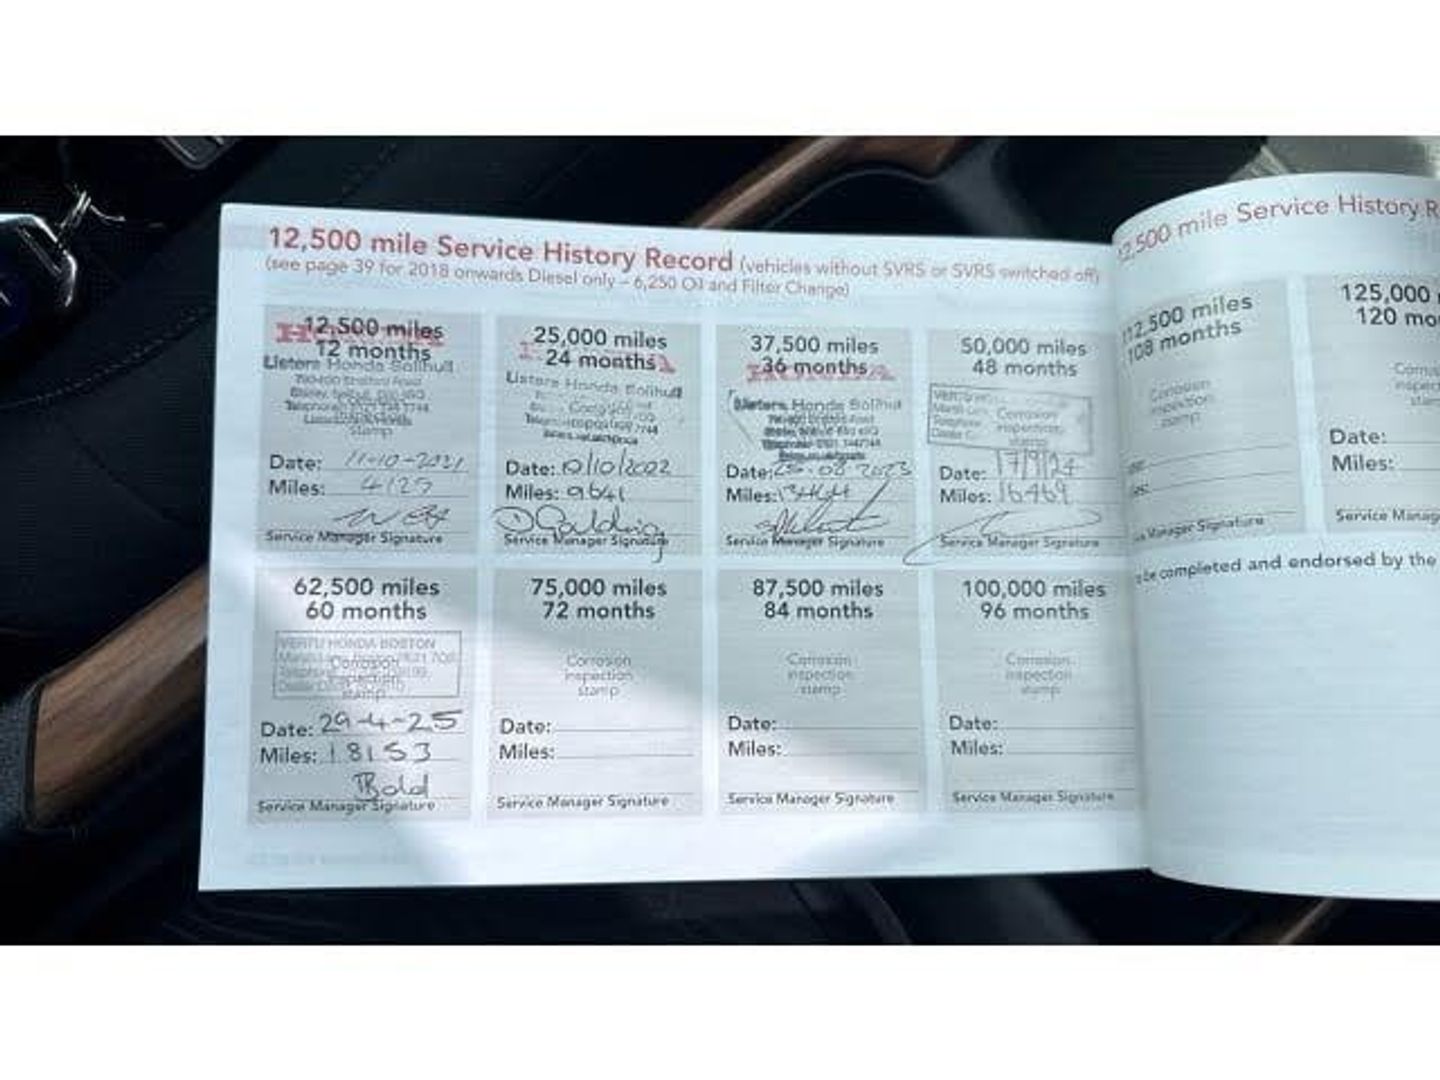 12,500 mile Service History Record (vehicles without SVRS or SVRS switched off)
(see page 39 for 2018 onwards Diesel only – 6,250 Oil and Filter Change)
12,500 miles
12 months
Listers Honda Solihull
stamp
Date: 11-10-2021
Miles:
Service Manager Signature
25,000 miles
24 months
Listers Honda Solihull
Date: 10/10/2022
Miles: 9641
D Goulding
Service Manager Signature
37,500 miles
36 months
HONDA
Listers Honda Solihull
Date: 25.08 2023
Miles:
Service Manager Signature
50,000 miles
48 months
Corrosion
inspection
stamp
Date: 17/9/24
Miles: 16469
Service Manager Signature
62,500 miles
60 months
VERTU HONDA BOSTON
Corrosion
inspection
stamp
Date: 29-4-25
Miles: 18153
Service Manager Signature
75,000 miles
72 months
Corrosion
inspection
stamp
Date:
Miles:
Service Manager Signature
87,500 miles
84 months
Corrosion
inspection
stamp
Date:
Miles:
Service Manager Signature
100,000 miles
96 months
Corrosion
inspection
stamp
Date:
Miles:
Service Manager Signature
12,500 mile Service History R
112,500 miles
108 months
Corrosion
inspection
stamp
Manager Signature
125,000
120 mo
Date:
Miles:
Service Manag
to be completed and endorsed by the